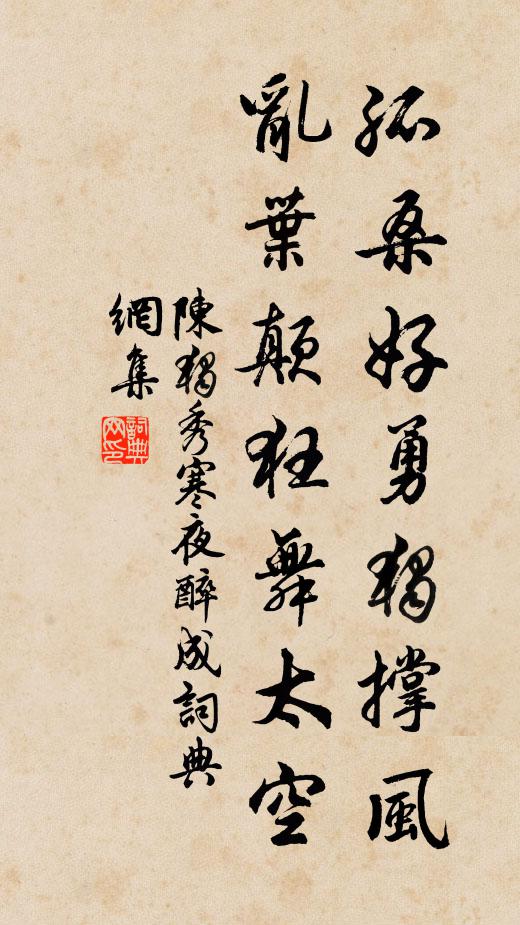 孤桑好勇獨撐風
亂葉顛狂舞太空
陳獨秀寒夜醉成詞典
網集
詞典網印